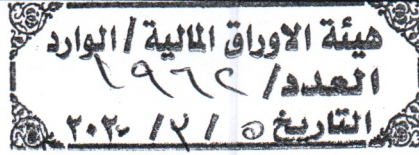 هيئة الاوراق المالية / الوارد
العدد / ١٩٦٢
التاريخ ٥ / ٣ / ٢٠٢٠